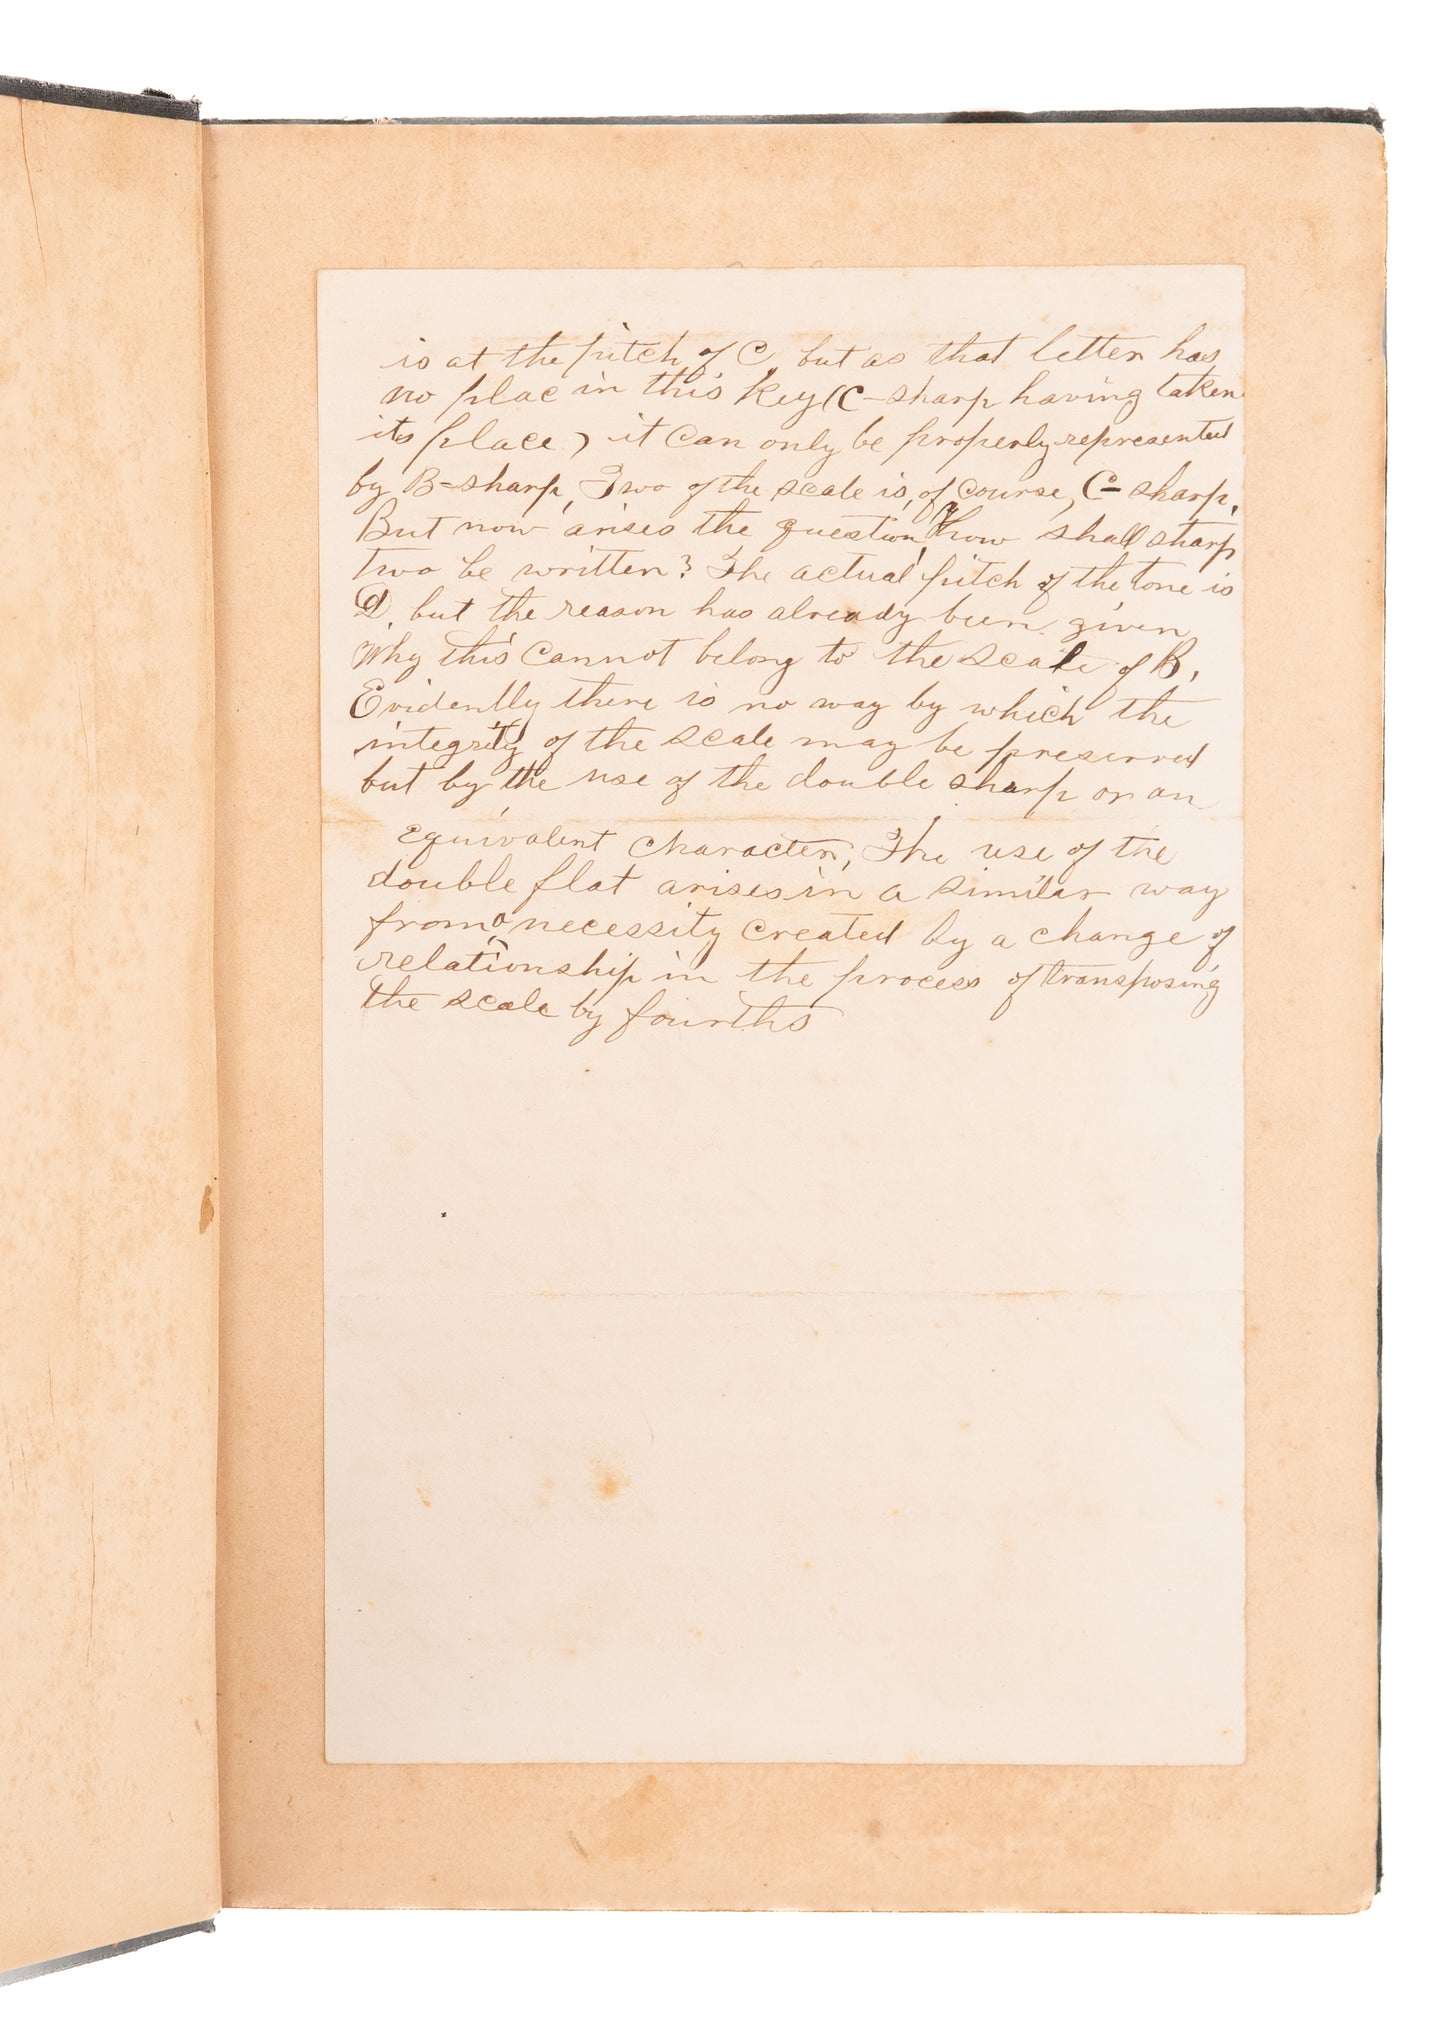 is at the pitch of C, but as that letter has
no plac in this key (C-sharp having taken
its place) it can only be properly represented
by B-sharp, Two of the scale is, of course, C-sharp.
But now arises the question, how shall sharp
two be written? The actual pitch of the tone is
D, but the reason has already been given
why this cannot belong to the scale of B.
Evidently there is no way by which the
integrity of the scale may be preserved
but by the use of the double sharp or an
equivalent character, The use of the
double flat arises in a similar way
from a necessity created by a change of
relationship in the process of transposing
the scale by fourths